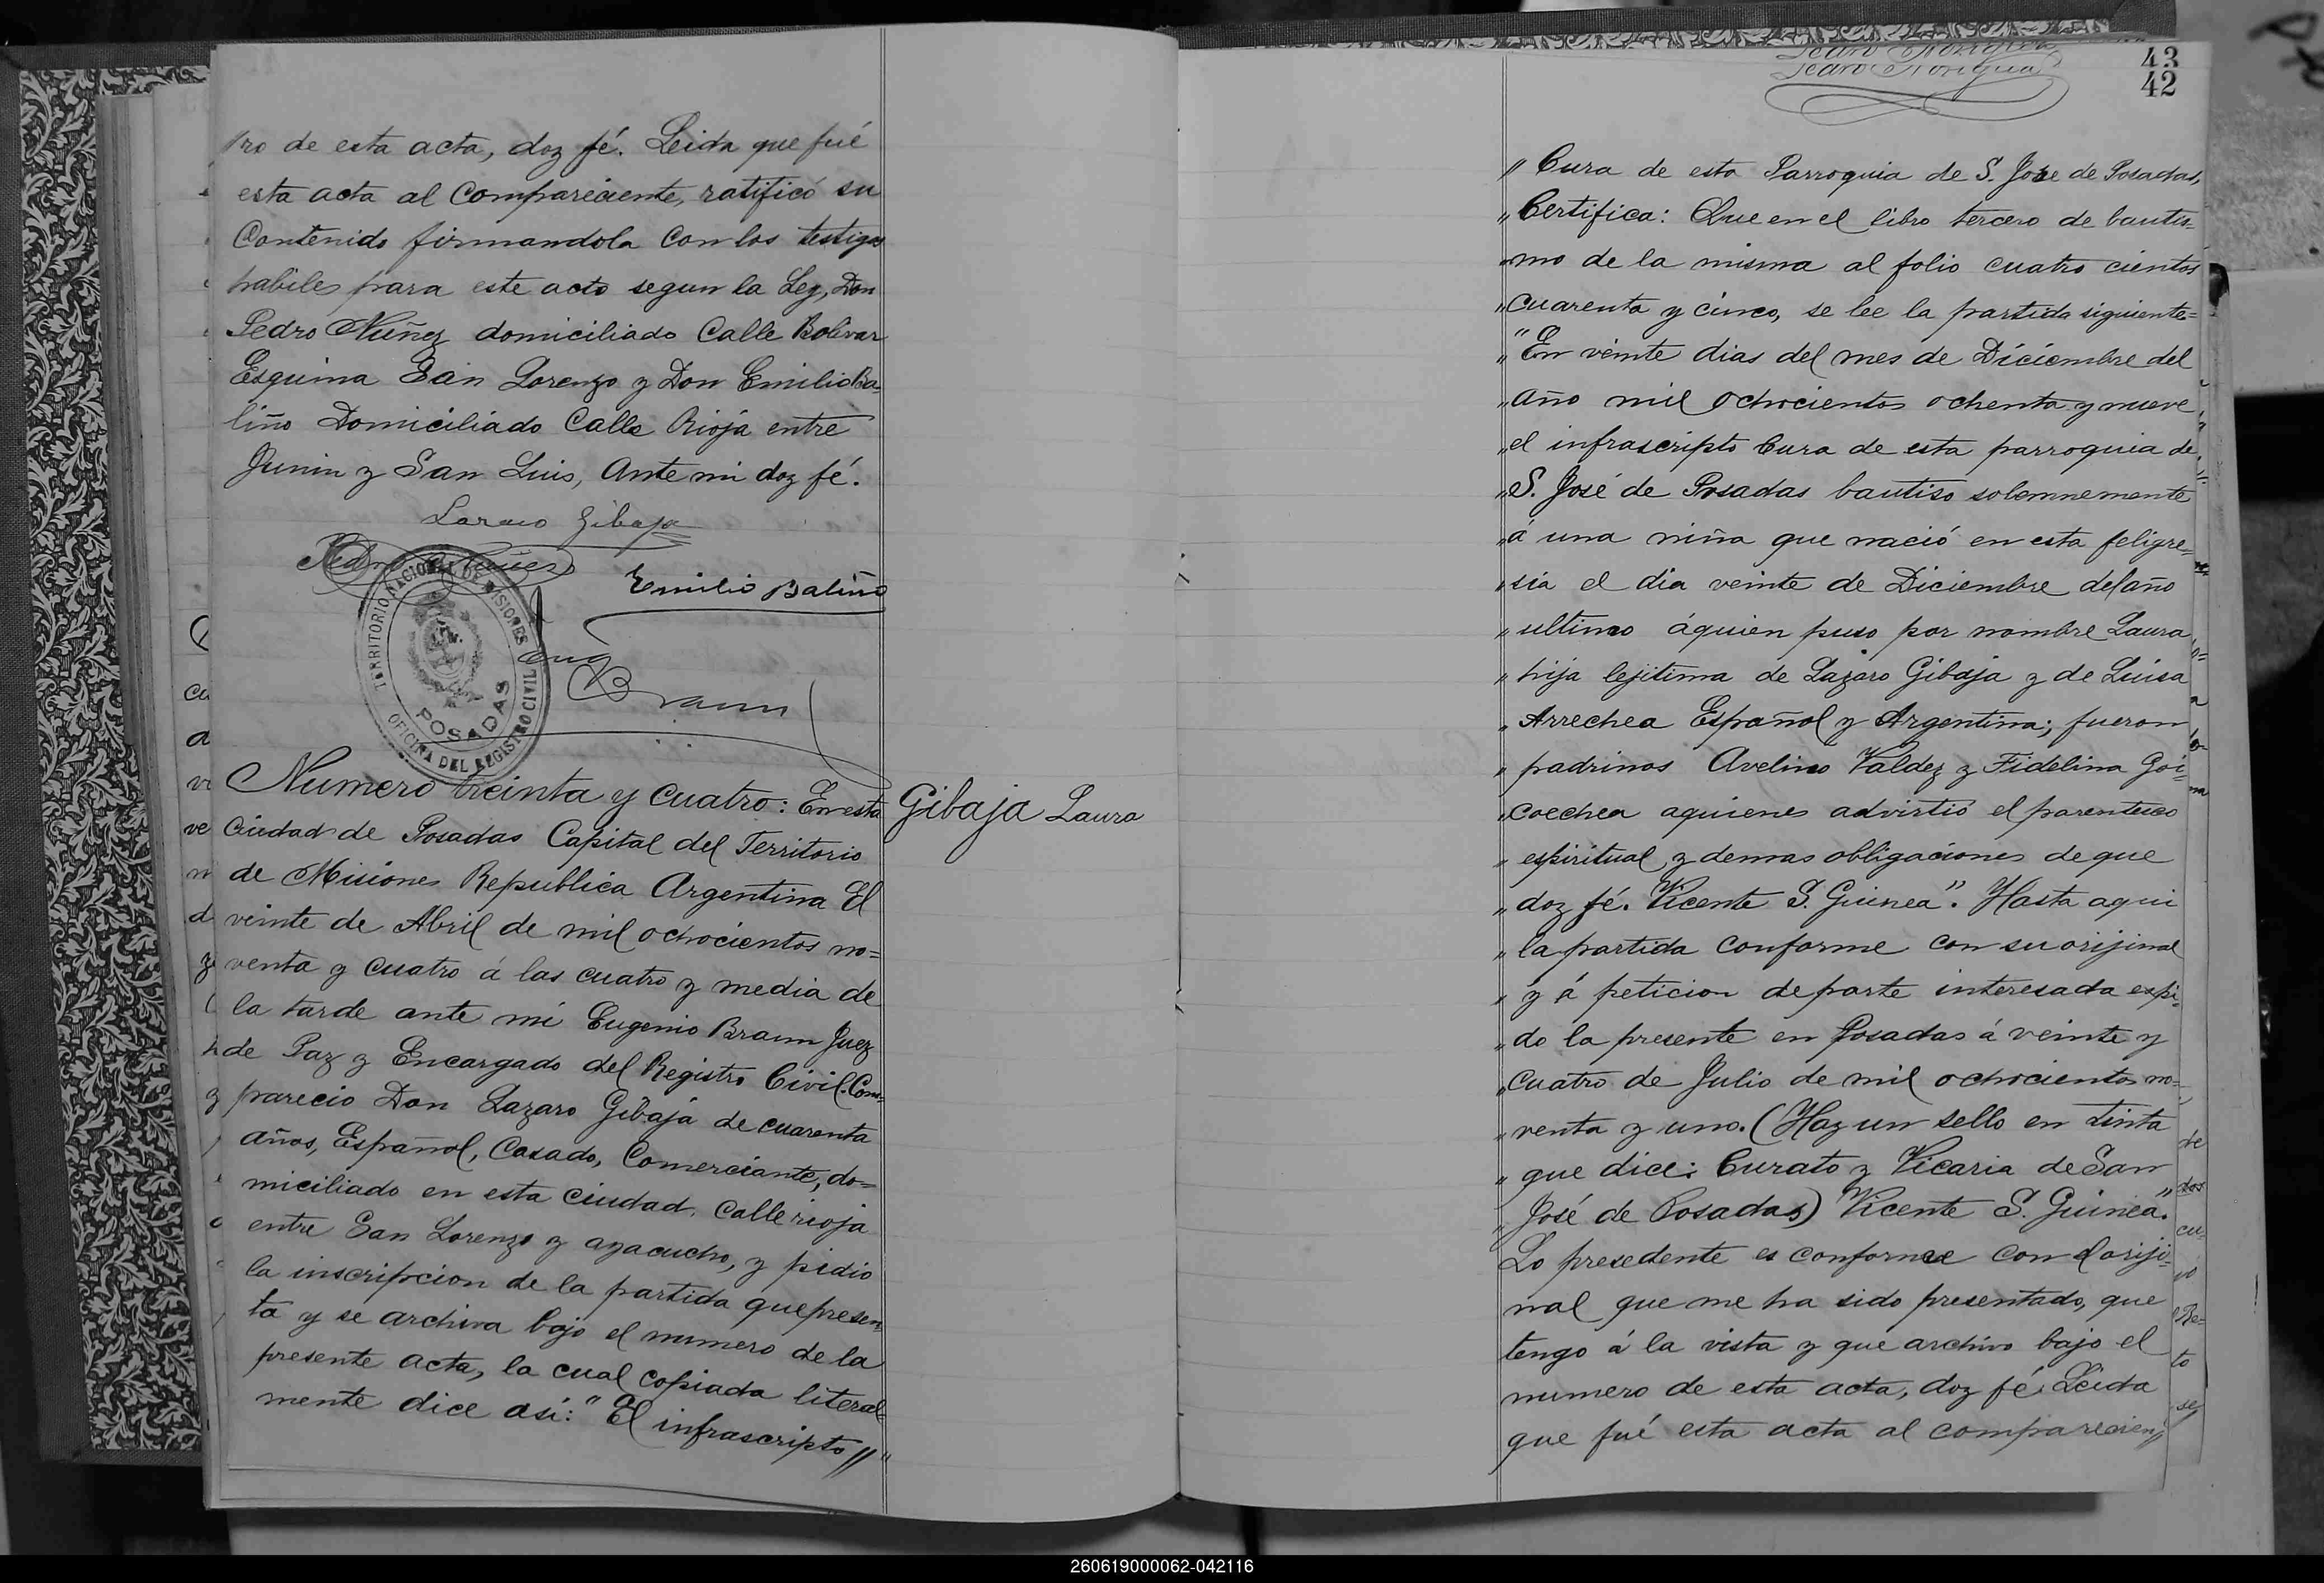 ro de esta acta, doz fé. Leida que fué
esta acta al Compareciente, ratificó su
Contenido firmandola Con los testigos
habiles para este acto segun la Ley, Don
Pedro Nuñez domiciliado Calle Bolivar
Esquina San Lorenzo y Don Emilio Ba-
liño Domiciliado Calle Rioja entre
Junin y San Luis, Ante mi doz fé.
Lazaro Gibaja
Pedro Nuñez
Emilio Baliño
TERRITORIO NACIONAL DE MISIONES
POSADAS
OFICINA DEL REGISTRO CIVIL
Eug
Braun
Numero treinta y cuatro: En esta
Gibaja Laura
Ciudad de Posadas Capital del Territorio
de Misiones Republica Argentina El
veinte de Abril de mil ochocientos no=
venta y cuatro á las cuatro y media de
la tarde ante mi Eugenio Braun Juez
de Paz y Encargado del Registro Civil. Com=
parecio Don Lazaro Gibaja de cuarenta
años, Español, Casado, Comerciante, do=
miciliado en esta Ciudad, Calle rioja
entre San Lorenzo y ayacucho, y pidio
la inscripcion de la partida que presen=
ta y se archiva bajo el numero de la
presente acta, la cual copiada literal=
mente dice así: "El infrascripto"
43
42
Pedro Noriguea
" Cura de esta Parroquia de S. Jose de Posadas,
" Certifica: Que en el libro tercero de bautis=
" mo de la misma al folio cuatro cientos
" cuarenta y cinco, se lee la partida siguiente=
" "En veinte dias del mes de Diciembre del
" año mil ochocientos ochenta y nueve,
" el infrascripto Cura de esta parroquia de
" S. José de Posadas bautiso solemnemente
" á una niña que nació en esta feligre=
" sia el dia veinte de Diciembre del año
" ultimo áquien puso por nombre Laura,
" hija lejitima de Lazaro Gibaja y de Luisa
" Arrechea Español y Argentina; fueron
" padrinos Avelino Valdez y Fidelina Goi=
" coechea aquienes advirtió el parentesco
" espiritual y demas obligaciones de que
" doz fé. Vicente S. Guinea". Hasta aqui
" la partida conforme con su orijinal
" y á peticion de parte interesada espi=
" do la presente en Posadas á veinte y
" Cuatro de Julio de mil ochocientos no=
" venta y uno. (Hay un sello en tinta
" que dice: Curato y Vicaria de San
" José de Posadas) Vicente S. Guinea".
Lo presedente es conforme con el oriji=
nal que me ha sido presentado, que
tengo á la vista y que archivo bajo el
numero de esta acta, doz fé. Leida
que fué esta acta al comparecien
260619000062-042116